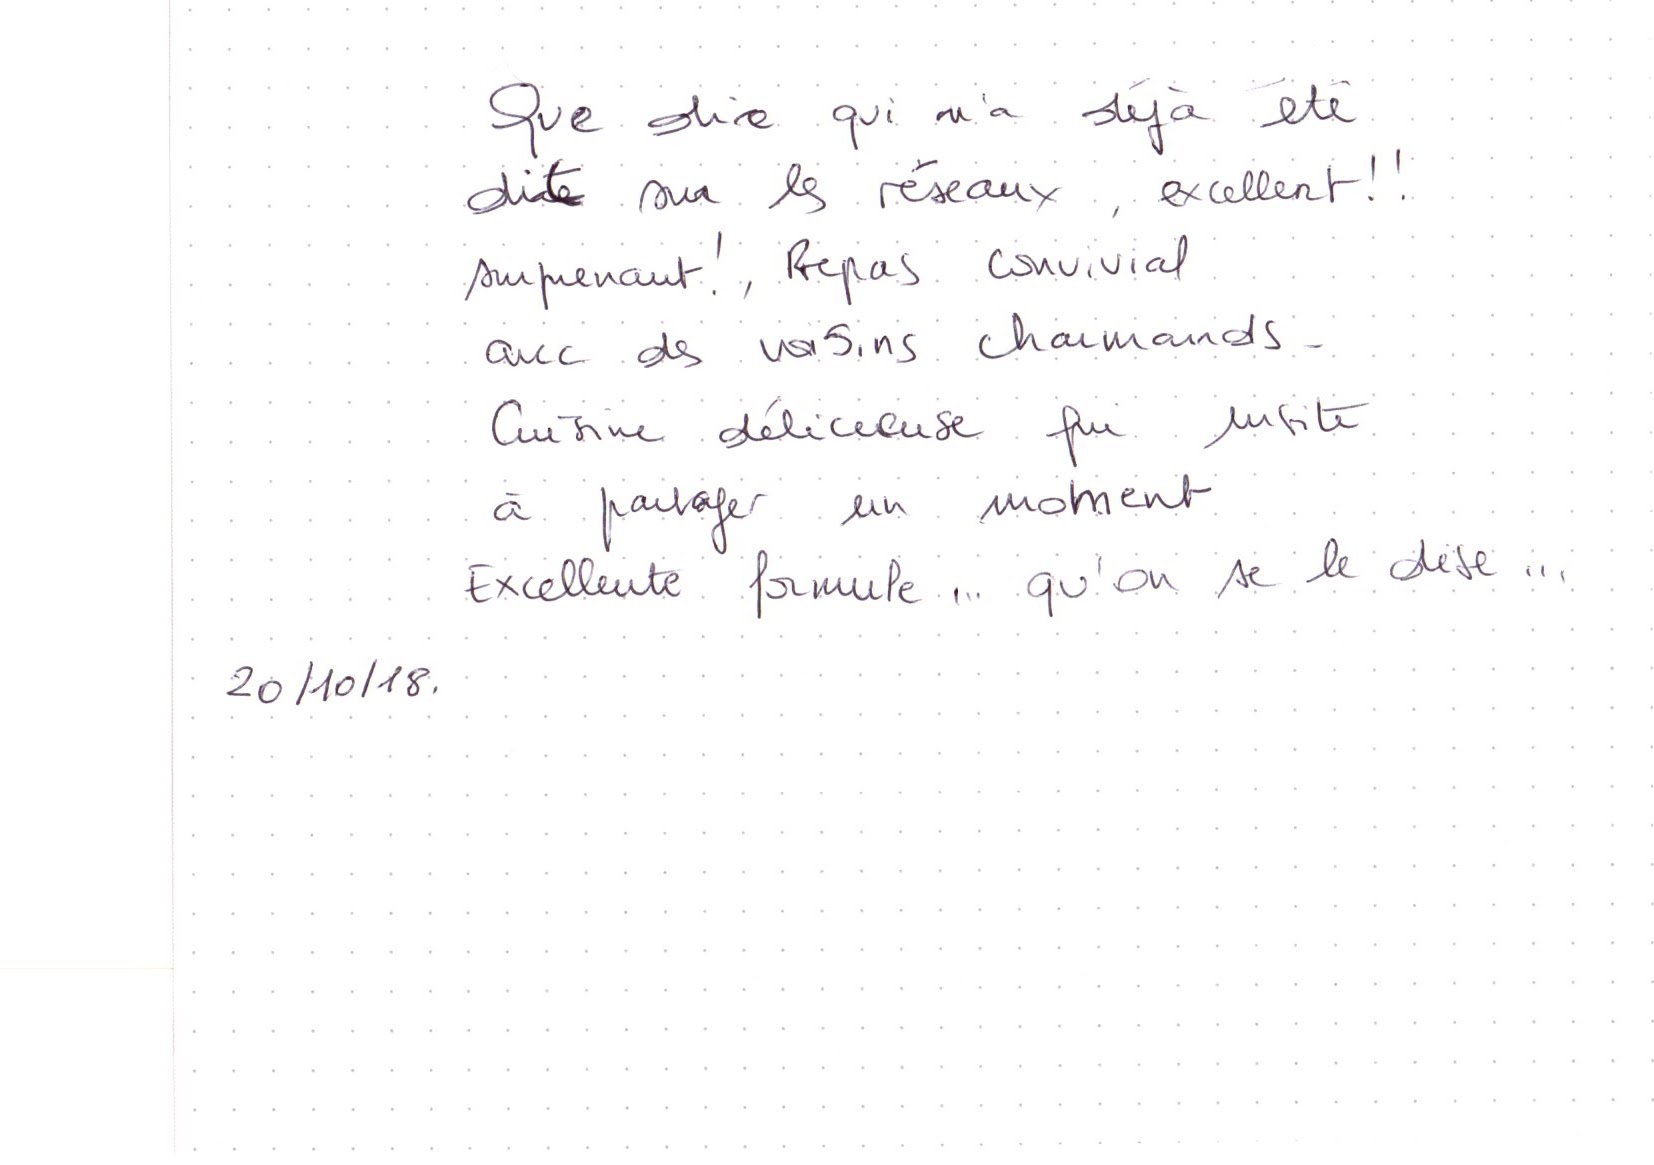 Que dire qui n'a déjà été
dite sur les réseaux, excellent!!
surprenant!, Repas convivial
avec des voisins charmands-
Cuisine délicieuse qui incite
à partager un moment
Excellente formule... qu'on se le dise...
20/10/18.